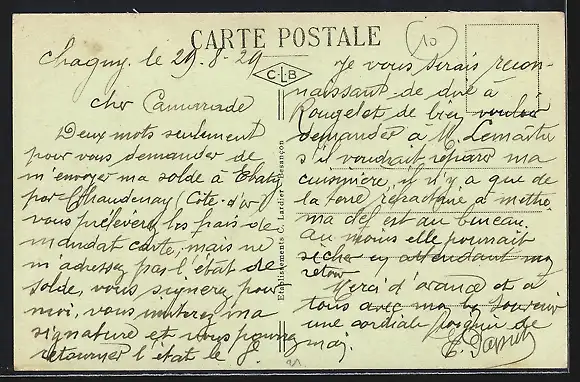 CARTE POSTALE
10
Chagny, le 29-8-29
cher Camarade
Deux mots seulement
pour vous demander de
m'envoyer ma solde à
par Chaudenay (Côte-d'or)
vous prélèverez les frais de
mandat carte, mais ne
m'adressez pas l'état de
solde, vous signerez pour
moi, vous imiterez ma
signature et vous pourrez
retourner l'état le 8.
C-L-B
Etablissements C. Lardier - Besançon
Je vous serais recon-
naissant de dire à
Rougelet de bien vouloir
demander à M. Lemaître
s'il voudrait réparer ma
cuisinière, il n'y a que de
la terre réfractaire à mettre,
ma clef est au bureau.
Au moins elle pourrait
sécher en attendant mon
retour
Merci d'avance et à
tous avec mon souvenir
une cordiale poignée de
main